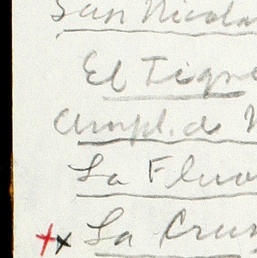 San Nicola
El Tigre
Ampl. de
La Fluo
++ La Cru